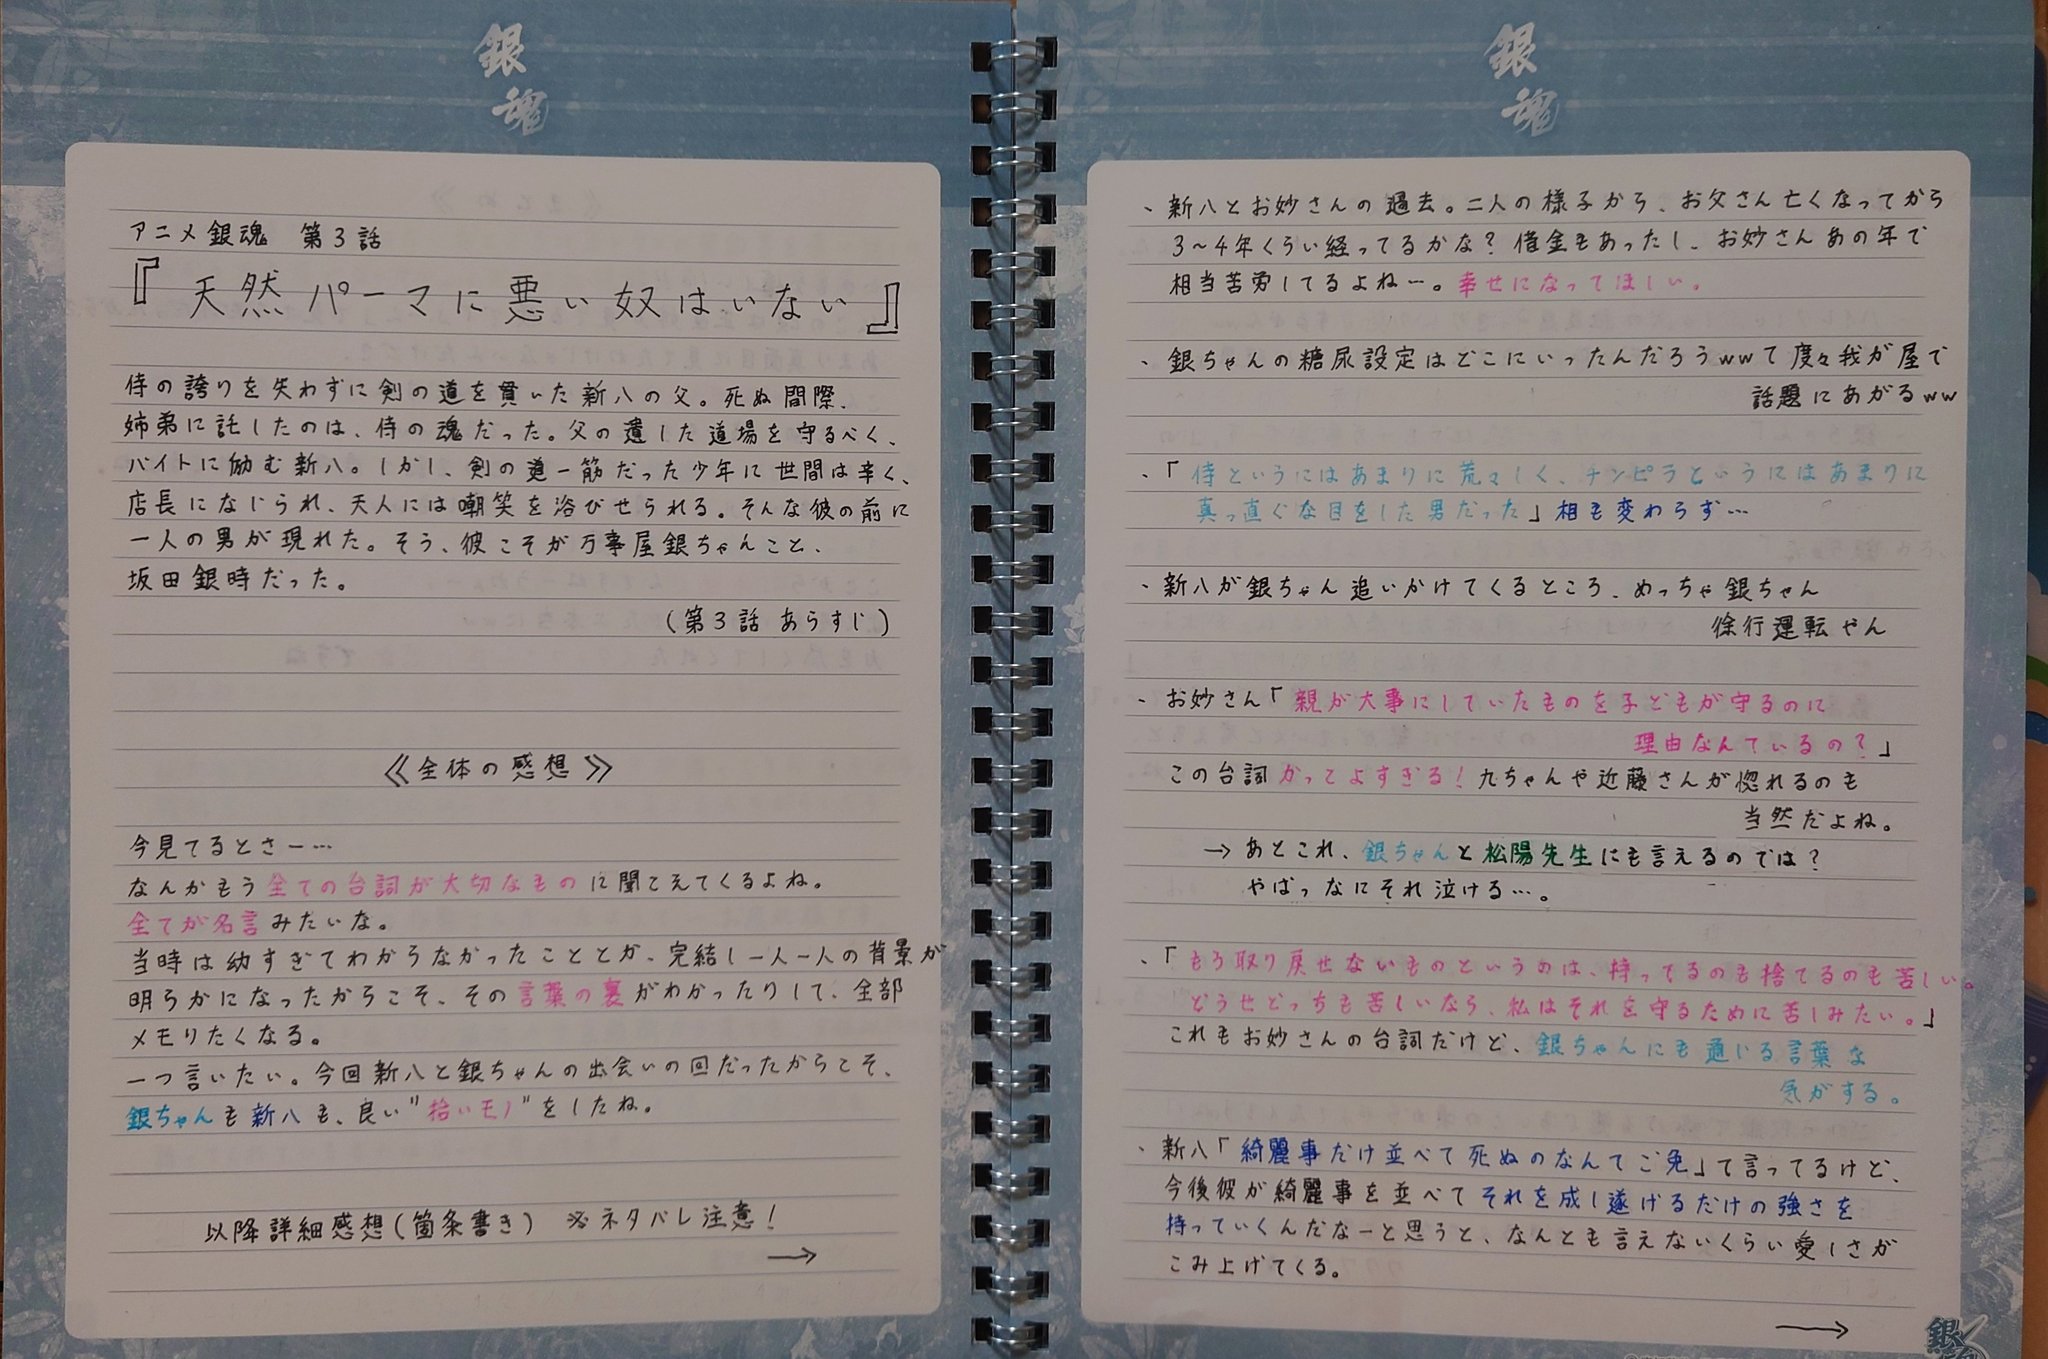 銀魂
アニメ銀魂 第3話
『天然パーマに悪い奴はいない』
侍の誇りを失わずに剣の道を貫いた新八の父。死ぬ間際、
姉弟に託したのは、侍の魂だった。父の遺した道場を守るべく、
バイトに励む新八。しかし、剣の道一筋だった少年に世間は辛く、
店長になじられ、天人には嘲笑を浴びせられる。そんな彼の前に
一人の男が現れた。そう、彼こそが万事屋銀ちゃんこと、
坂田銀時だった。
(第3話 あらすじ)
《全体の感想》
今見てるとさー…
なんかもう全ての台詞が大切なものに聞こえてくるよね。
全てが名言みたいな。
当時は幼すぎてわからなかったこととか、完結し一人一人の背景が
明らかになったからこそ、その言葉の裏がわかったりして、全部
メモりたくなる。
一つ言いたい。今回新八と銀ちゃんの出会いの回だったからこそ、
銀ちゃんも新八も、良い"拾いモノ"をしたね。
以降詳細感想(箇条書き) ※ネタバレ注意!
→
銀魂
、新八とお妙さんの過去。二人の様子から、お父さん亡くなってから
3〜4年くらい経ってるかな?借金もあったし、お妙さんあの年で
相当苦労してるよねー。幸せになってほしい。
、銀ちゃんの糖尿設定はどこにいったんだろうwwて度々我が屋で
話題にあがるww
、「侍というにはあまりに荒々しく、チンピラというにはあまりに
真っ直ぐな目をした男だった」相も変わらず…
、新八が銀ちゃん追いかけてくるところ、めっちゃ銀ちゃん
徐行運転やん
、お妙さん「親が大事にしていたものを子どもが守るのに
理由なんているの?」
この台詞かってよすぎる!九ちゃんや近藤さんが惚れるのも
当然だよね。
→あとこれ、銀ちゃんと松陽先生にも言えるのでは?
やばっなにそれ泣ける…。
、「もう取り戻せないものというのは、持ってるのも捨てるのも苦しい。
どうせどっちも苦しいなら、私はそれを守るために苦しみたい。」
これもお妙さんの台詞だけど、銀ちゃんにも通じる言葉な
気がする。
、新八「綺麗事だけ並べて死ぬのなんてご免」て言ってるけど、
今後彼が綺麗事を並べてそれを成し遂げるだけの強さを
持っていくんだなーと思うと、なんとも言えないくらい愛しさが
こみ上げてくる。
→